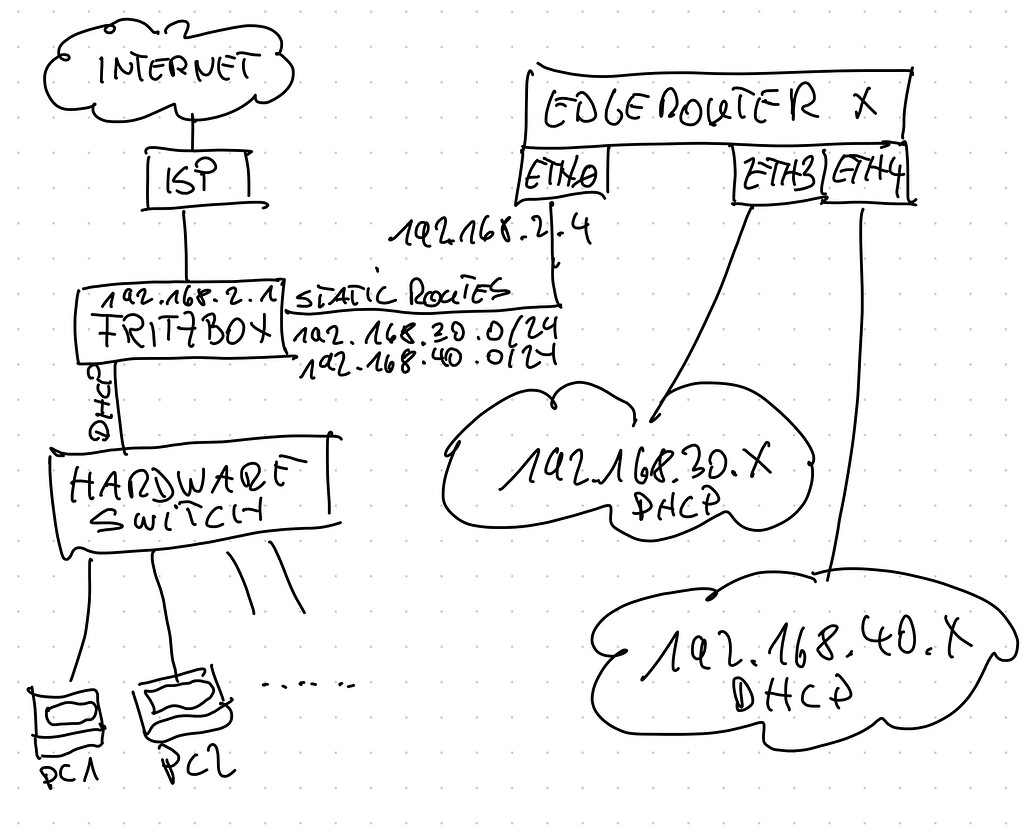 INTERNET
ISP
192.168.2.1
FRITZBOX
DHCP
HARDWARE
SWITCH
PC1
PC2
EDGEROUTER X
ETH0
ETH3
ETH4
192.168.2.4
STATIC ROUTES
192.168.30.0/24
192.168.40.0/24
192.168.30.X
DHCP
192.168.40.X
DHCP